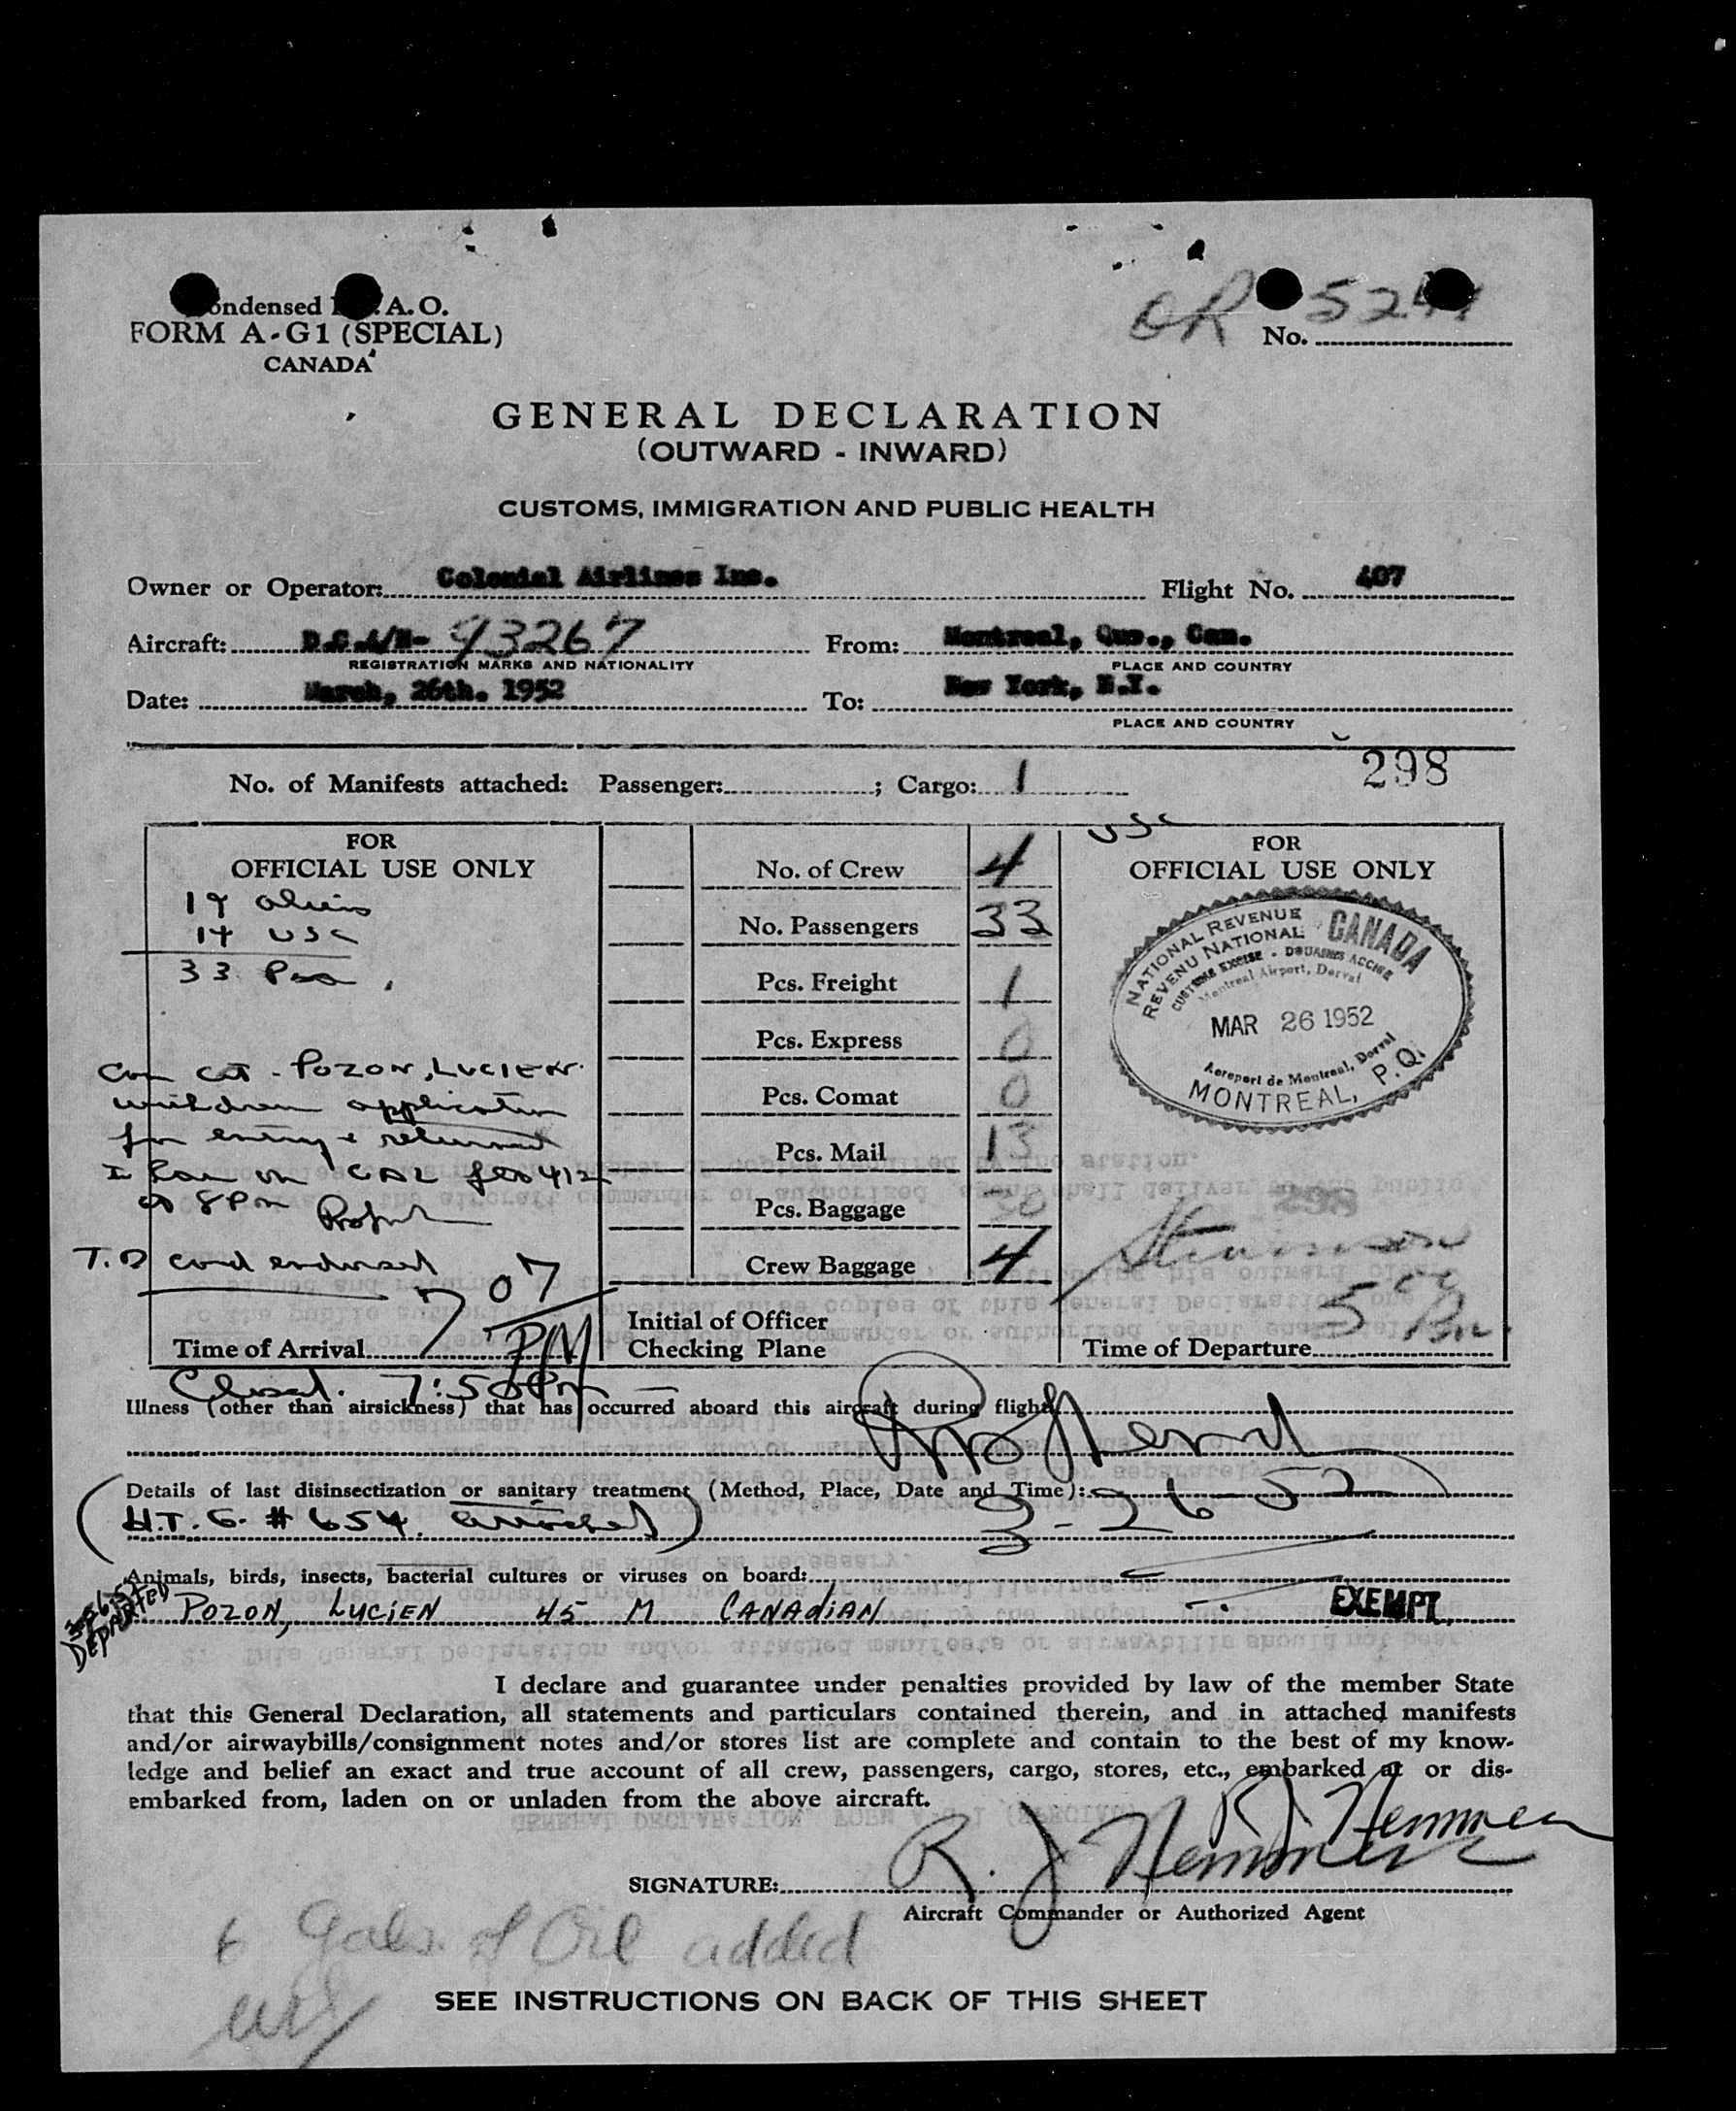 ondensed A.O.
FORM A-G1 (SPECIAL)
CANADA
No. 524
GENERAL DECLARATION
(OUTWARD - INWARD)
CUSTOMS, IMMIGRATION AND PUBLIC HEALTH
Owner or Operator: Colonial Airlines Inc. Flight No. 407
Aircraft: D.C.4/N- 93267 From: Montreal, Que., Can.
REGISTRATION MARKS AND NATIONALITY PLACE AND COUNTRY
Date: March, 26th. 1952 To: New York, N.Y.
PLACE AND COUNTRY
298
No. of Manifests attached: Passenger: ; Cargo: 1
USC
FOR
OFFICIAL USE ONLY
19 aliens
14 USC
33 Pass
Can Cit - POZON, LUCIEN
withdrew application
for entry & returned
on CAL 412
8 PM
T.D card endorsed
Time of Arrival 7 07 PM
No. of Crew 4
No. Passengers 33
Pcs. Freight 1
Pcs. Express 0
Pcs. Comat 0
Pcs. Mail 13
Pcs. Baggage 30
Crew Baggage 4
Initial of Officer
Checking Plane
FOR
OFFICIAL USE ONLY
NATIONAL REVENUE CANADA
REVENU NATIONAL
CUSTOMS EXCISE - DOUANES ACCISE
Montreal Airport, Dorval
MAR 26 1952
Aeroport de Montreal, Dorval
MONTREAL, P.Q.
298
Time of Departure 5
Closed. 7:50 PM
Illness (other than airsickness) that has occurred aboard this aircraft during flight:
Details of last disinsectization or sanitary treatment (Method, Place, Date and Time):
(H.T.G. # 654. attached) 3-26-52
Animals, birds, insects, bacterial cultures or viruses on board:
DEPARTED POZON, LUCIEN 45 M CANADIAN EXEMPT.
I declare and guarantee under penalties provided by law of the member State
that this General Declaration, all statements and particulars contained therein, and in attached manifests
and/or airwaybills/consignment notes and/or stores list are complete and contain to the best of my know-
ledge and belief an exact and true account of all crew, passengers, cargo, stores, etc., embarked at or dis-
embarked from, laden on or unladen from the above aircraft.
SIGNATURE: R. J
Aircraft Commander or Authorized Agent
6 Gals. of Oil added
SEE INSTRUCTIONS ON BACK OF THIS SHEET